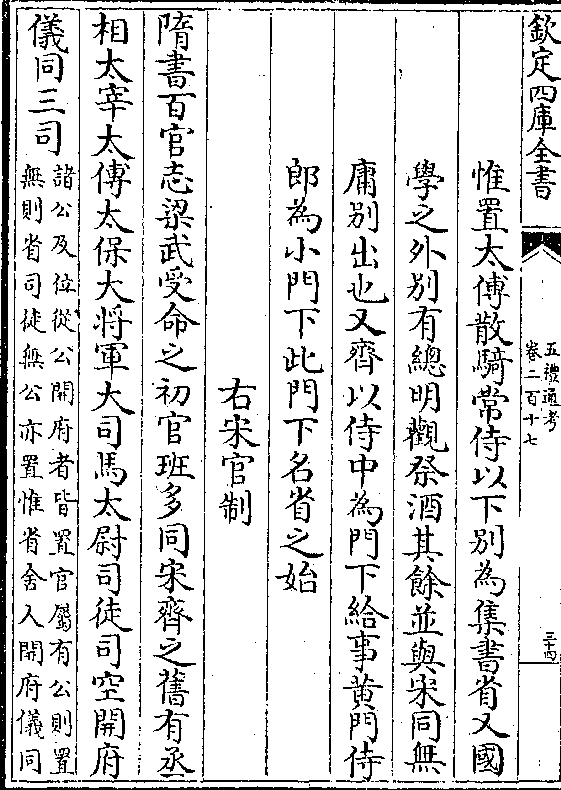 欽定四庫全書
五禮通考
卷二百十七
三十四
惟置太傅散騎常侍以下別為集書省又國
學之外別有總明觀祭酒其餘並與宋同無
庸別出也又齊以侍中為門下給事黄門侍
郎為小門下此門下名省之始
右宋官制
隋書百官志梁武受命之初官班多同宋齊之舊有丞
相太宰太傅太保大將軍大司馬太尉司徒司空開府
儀同三司
諸公及位從公開府者皆置官屬有公則置
無則省司徒無公亦置惟省舍人開府儀同